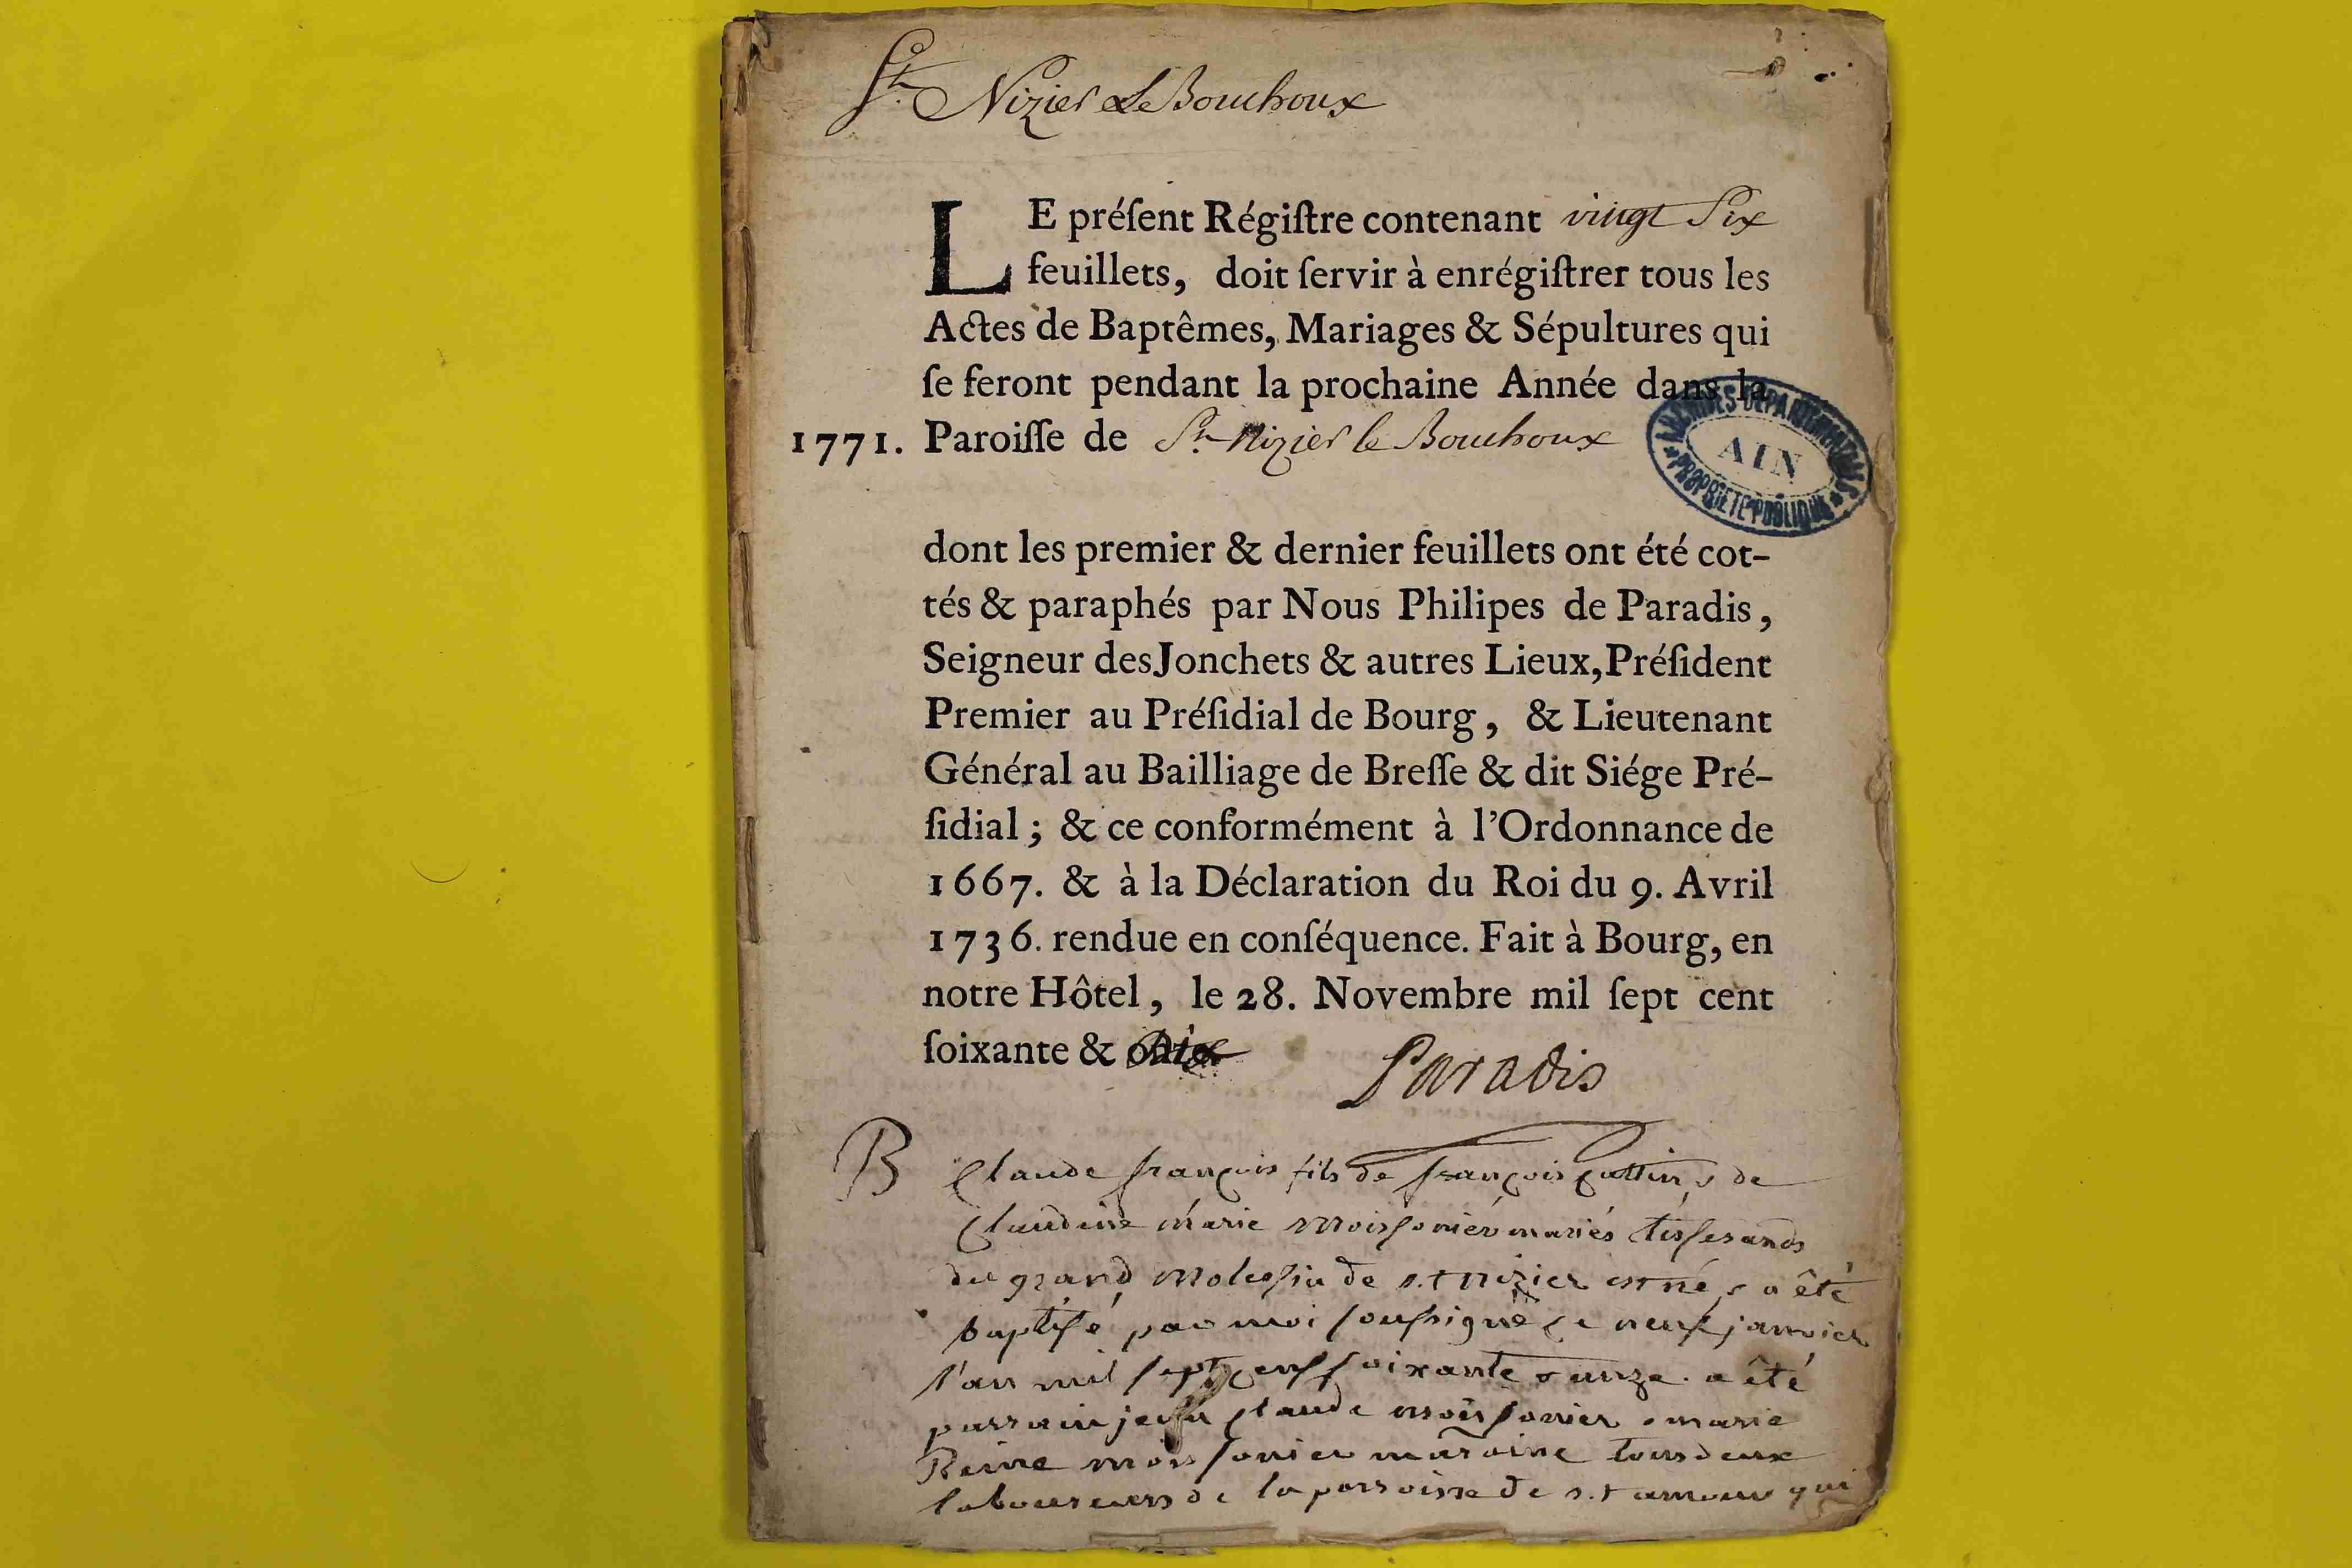 St. Nizier Le Bouchoux
LE préſent Régiſtre contenant vingt Six
feuillets, doit ſervir à enrégiſtrer tous les
Actes de Baptêmes, Mariages & Sépultures qui
ſe feront pendant la prochaine Année dans la
1771. Paroiſſe de St. Nizier le Bouchoux
ARCHIVES DÉPARTEMENTALES
AIN
PROPRIÉTÉ PUBLIQUE
dont les premier & dernier feuillets ont été cot-
tés & paraphés par Nous Philipes de Paradis,
Seigneur des Jonchets & autres Lieux, Préſident
Premier au Préſidial de Bourg, & Lieutenant
Général au Bailliage de Breſſe & dit Siége Pré-
ſidial; & ce conformément à l'Ordonnance de
1667. & à la Déclaration du Roi du 9. Avril
1736. rendue en conſéquence. Fait à Bourg, en
notre Hôtel, le 28. Novembre mil ſept cent
ſoixante & Dix
Paradis
B Claude françois fils de françois & de
Claudine marie moissonier mariés tisserands
du grand de s.t nizier est né & a été
baptisé par moi soussigné ce neuf janvier
l'an mil sept cens soixante & unze. a été
parrain claude moissonier & marie
Reine moissonier maraine tous deux
laboureurs de la parroisse de s.t amour qui